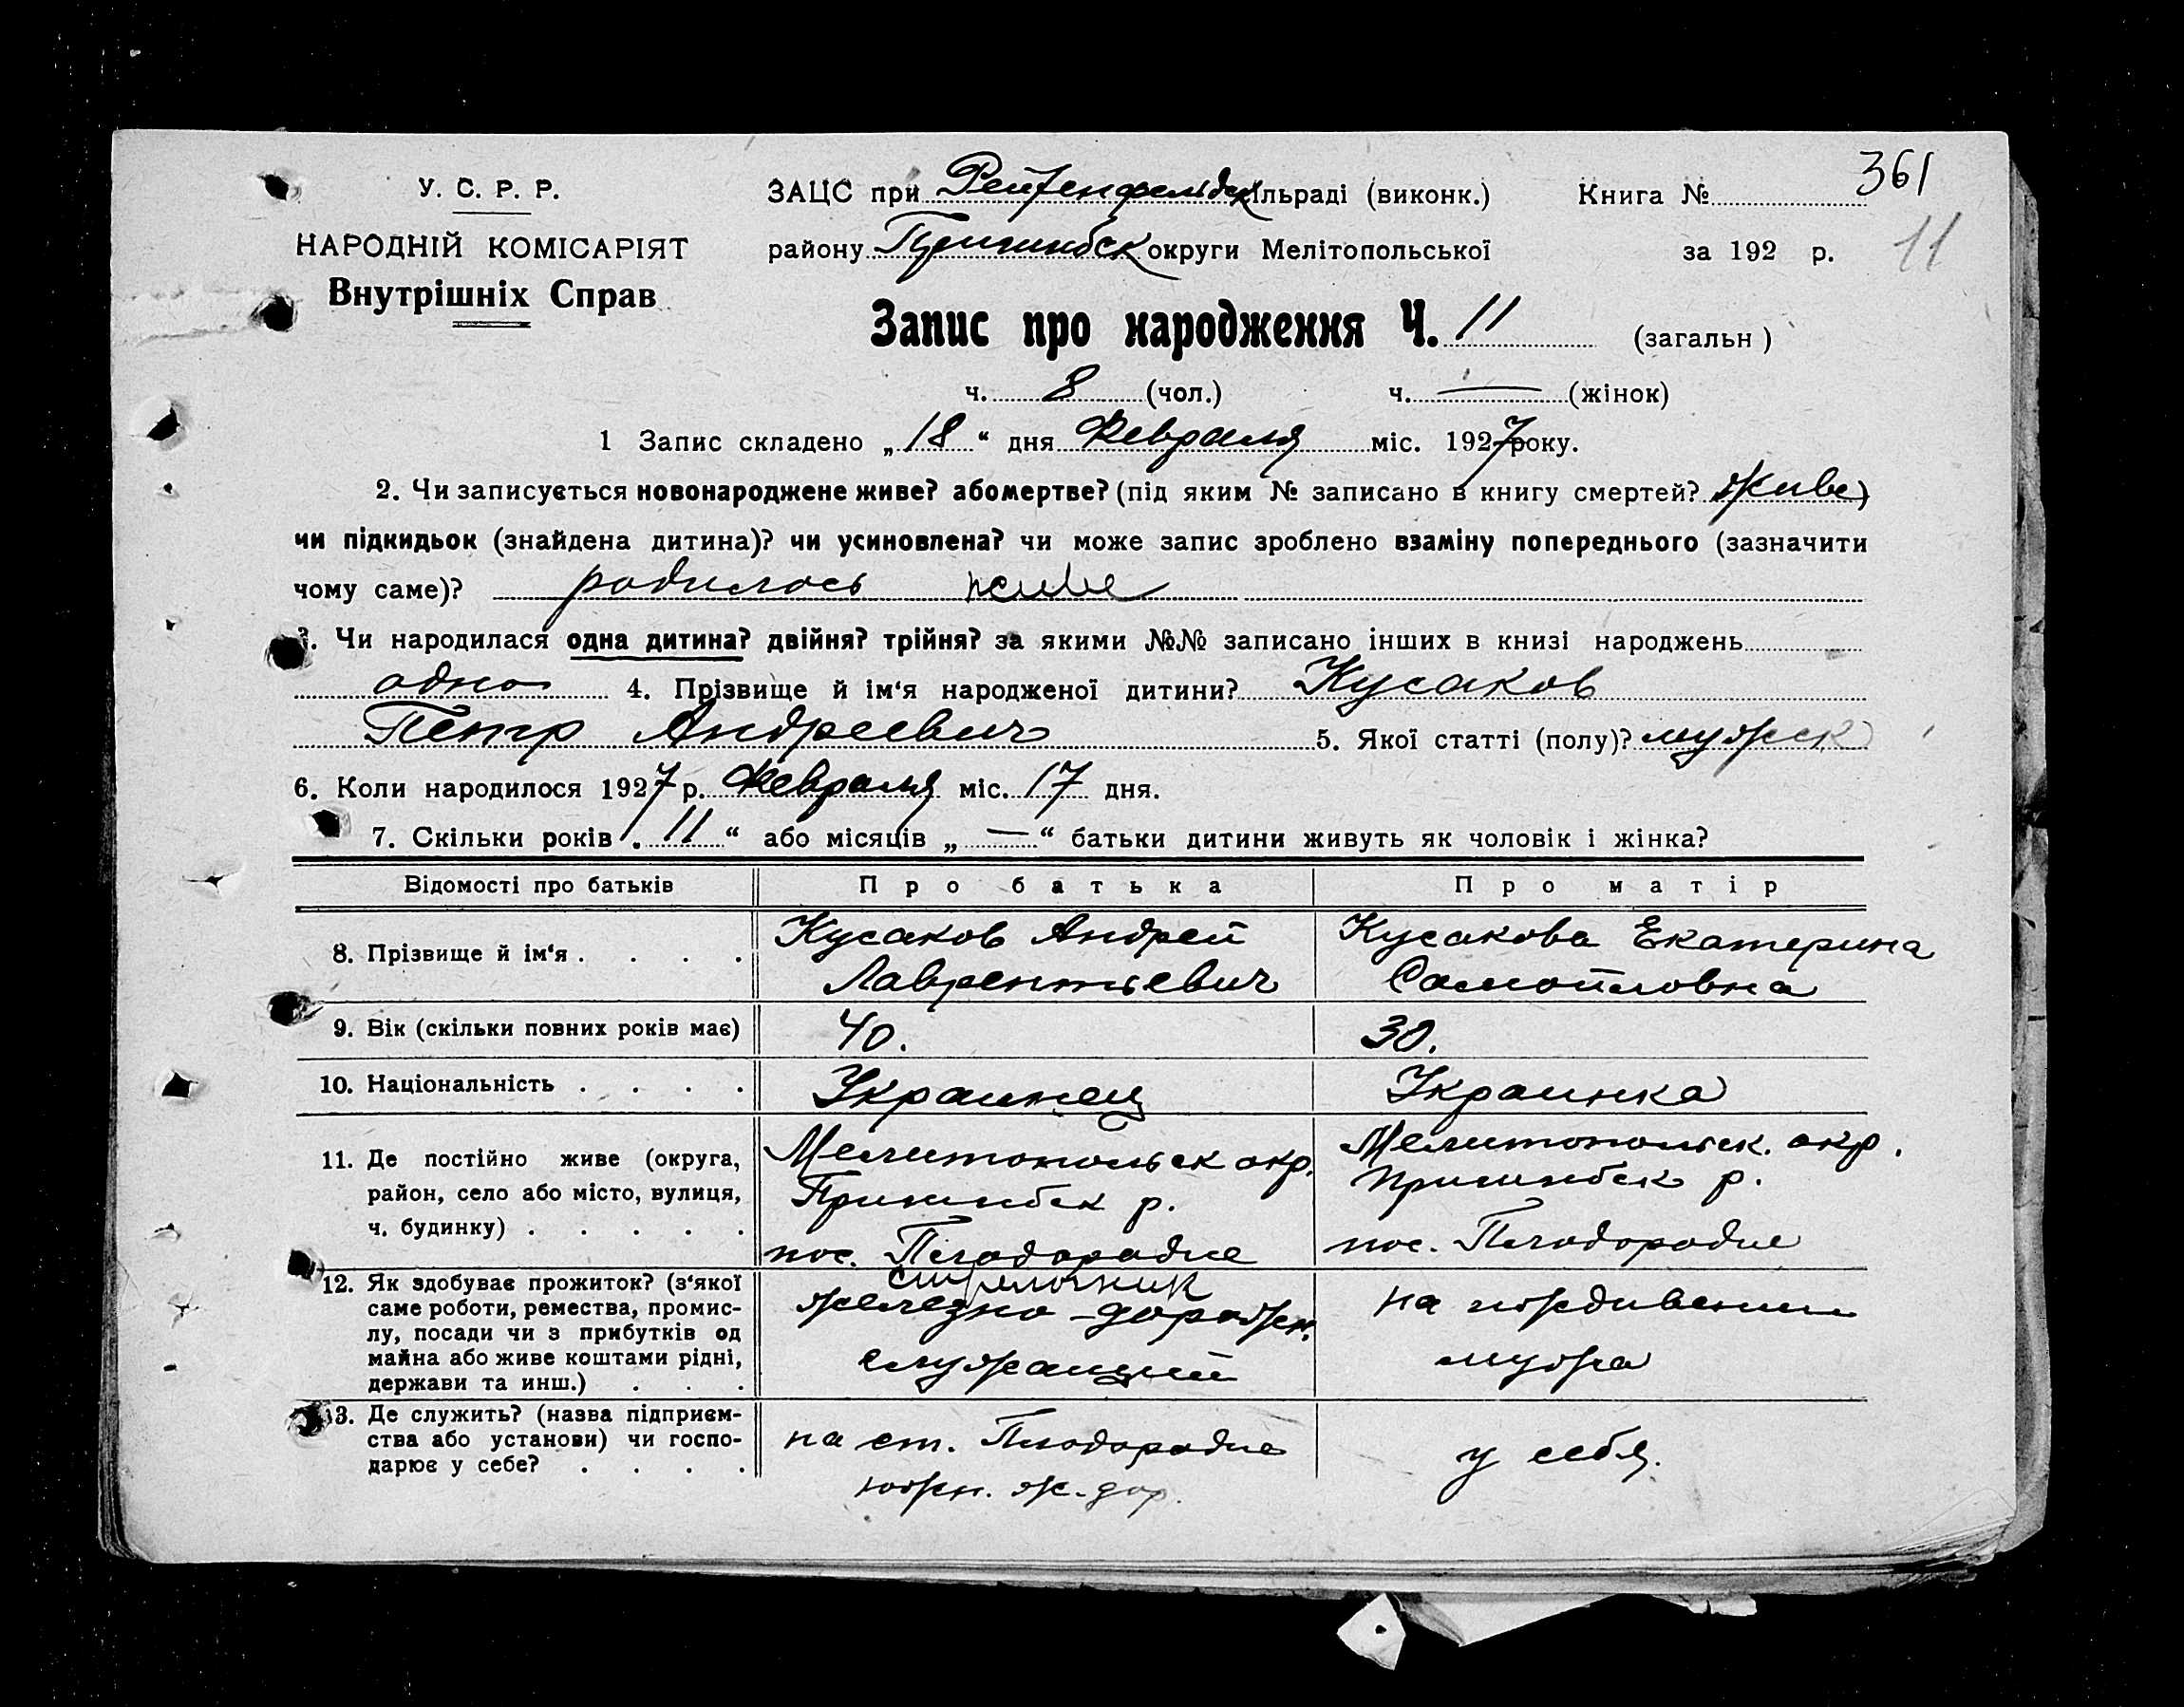 361
У. С. Р. Р.
НАРОДНІЙ КОМІСАРІЯТ
Внутрішніх Справ
ЗАЦС при Рейхенфельдск ільраді (виконк.) Книга №
району Пришибск округи Мелітопольської за 192 р. 11
Запис про народження Ч. 11 (загальн )
ч. 8 (чол.) ч. — (жінок)
1 Запис складено „18“ дня Февраля міс. 1927 року.
2. Чи записується новонароджене живе? або мертве? (під яким № записано в книгу смертей? живе)
чи підкидьок (знайдена дитина)? чи усиновлена? чи може запис зроблено взаміну попереднього (зазначити
чому саме)? родилось живе
3. Чи народилася одна дитина? двійня? трійня? за якими №№ записано інших в книзі народжень
одно 4. Прізвище й ім'я народженої дитини? Кусаков
Петр Андреевич 5. Якої статті (полу)? мужск
6. Коли народилося 1927 р. Февраля міс. 17 дня.
7. Скільки років „11“ або місяців „—“ батьки дитини живуть як чоловік і жінка?
Відомості про батьків Про батька Про матір
8. Прізвище й ім'я . . . . Кусаков Андрей Кусакова Екатерина
Лаврентьевич Самойловна
9. Вік (скільки повних років має) 40. 30.
10. Національність . . . . Украинец Украинка
11. Де постійно живе (округа, Мелитопольск окр. Мелитопольск. окр.
район, село або місто, вулиця, Пришибск р. Пришибск р.
ч. будинку) . . . . . пос. Плодородие пос. Плодородие
12. Як здобуває прожиток? (з'якої стрелочник
саме роботи, ремества, промис- железно-дорожн. на иждивении
лу, посади чи з прибутків од
майна або живе коштами рідні, служащий мужа
держави та инш.) . . .
13. Де служить? (назва підприєм-
ства або установи) чи госпо- на ст. Плодородие у себя.
дарює у себе? . . . .
южн. ж. дор.